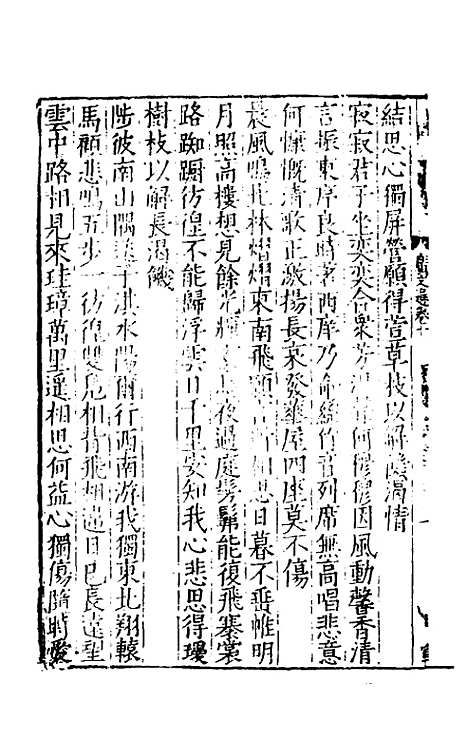 結思心獨屏營願得萱草枝以解飢渴情
寂寂君子坐奕奕合衆芳溫聲何穆穆因風動馨香清
言振東序良時著西庠乃命絲竹音列席無高唱悲意
何慷慨清歌正激揚長哀發華屋四座莫不傷
晨風鳴北林熠燿東南飛願言所相思日暮不垂帷明
月照高樓想見餘光輝玄鳥夜過庭髣髴能復飛褰裳
路踟躕彷徨不能歸浮雲日千里安知我心悲思得瓊
樹枝以解長渴飢
陟彼南山隅送子淇水陽爾行西南游我獨東北翔轅
馬顧悲鳴五步一彷徨雙鳧相背飛相遠日已長遠望
雲中路相見來珪璋萬里遥相思何益心獨傷隨時愛